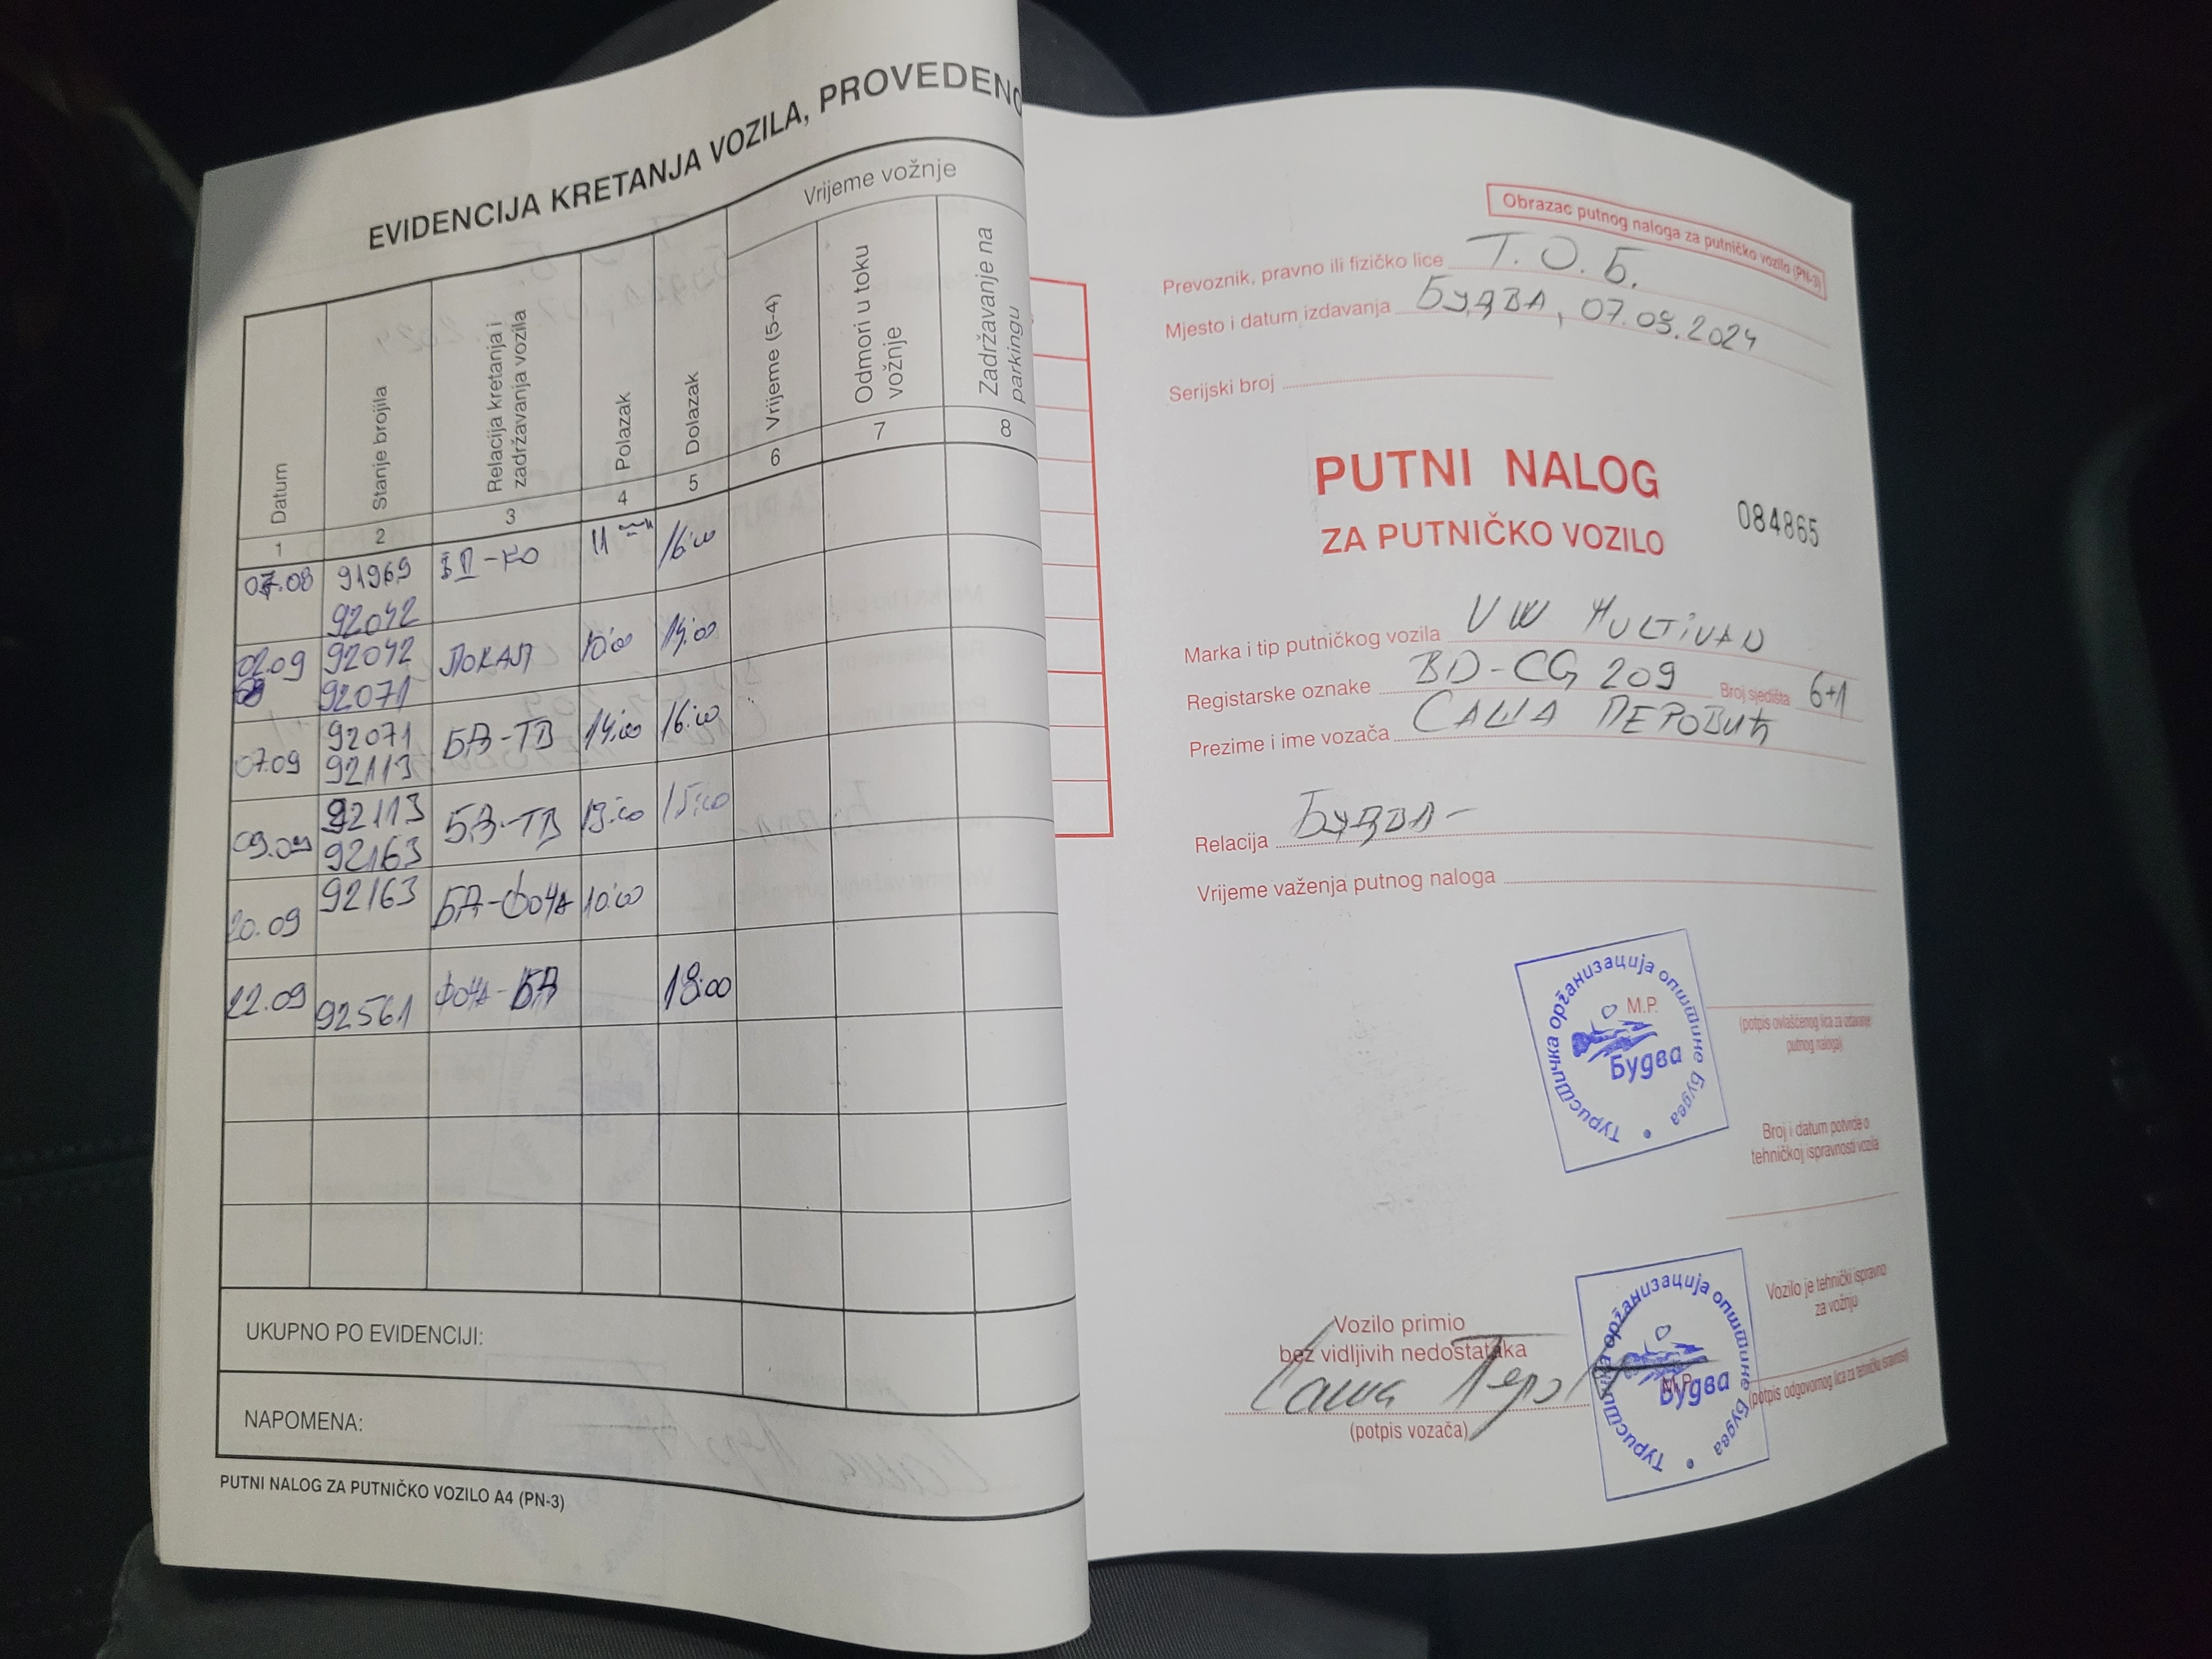 EVIDENCIJA KRETANJA VOZILA, PROVEDENO
Vrijeme vožnje
Datum
Stanje brojila
Relacija kretanja i
zadržavanja vozila
Polazak
Dolazak
Vrijeme (5-4)
Odmori u toku
vožnje
Zadržavanje na
parkingu
1 2 3 4 5 6 7 8
07.08 91969 11 16:00
92042
02.09 92042 ЛОКАЛ 10:00 14:00
92071
07.09 92071 БД-ТВ 14:00 16:00
92113
09.09 92113 БД-ТВ 13:00 15:00
92163
20.09 92163 БД-ФОЧА 10:00
22.09 92561 ФОЧА-БД 18:00
UKUPNO PO EVIDENCIJI:
NAPOMENA:
PUTNI NALOG ZA PUTNIČKO VOZILO A4 (PN-3)
Obrazac putnog naloga za putničko vozilo (PN-3)
Prevoznik, pravno ili fizičko lice Т.О.Б.
Mjesto i datum izdavanja БУДВА, 07.09.2024
Serijski broj
PUTNI NALOG
ZA PUTNIČKO VOZILO
084865
Marka i tip putničkog vozila VW MULTIVAN
Registarske oznake BD-CG 209 Broj sjedišta 6+1
Prezime i ime vozača САША ПЕРОВИЋ
Relacija БУДВА-
Vrijeme važenja putnog naloga
Туристичка организација општине Будва
М.Р.
Будва
(potpis ovlašćenog lica za izdavanje
putnog naloga)
Broj i datum potvrde o
tehničkoj ispravnosti vozila
Vozilo je tehnički ispravno
za vožnju
Vozilo primio
bez vidljivih nedostataka
Саша
(potpis vozača)
Туристичка организација општине Будва
M.P.
Будва
(potpis odgovornog lica za tehničku ispravnost)